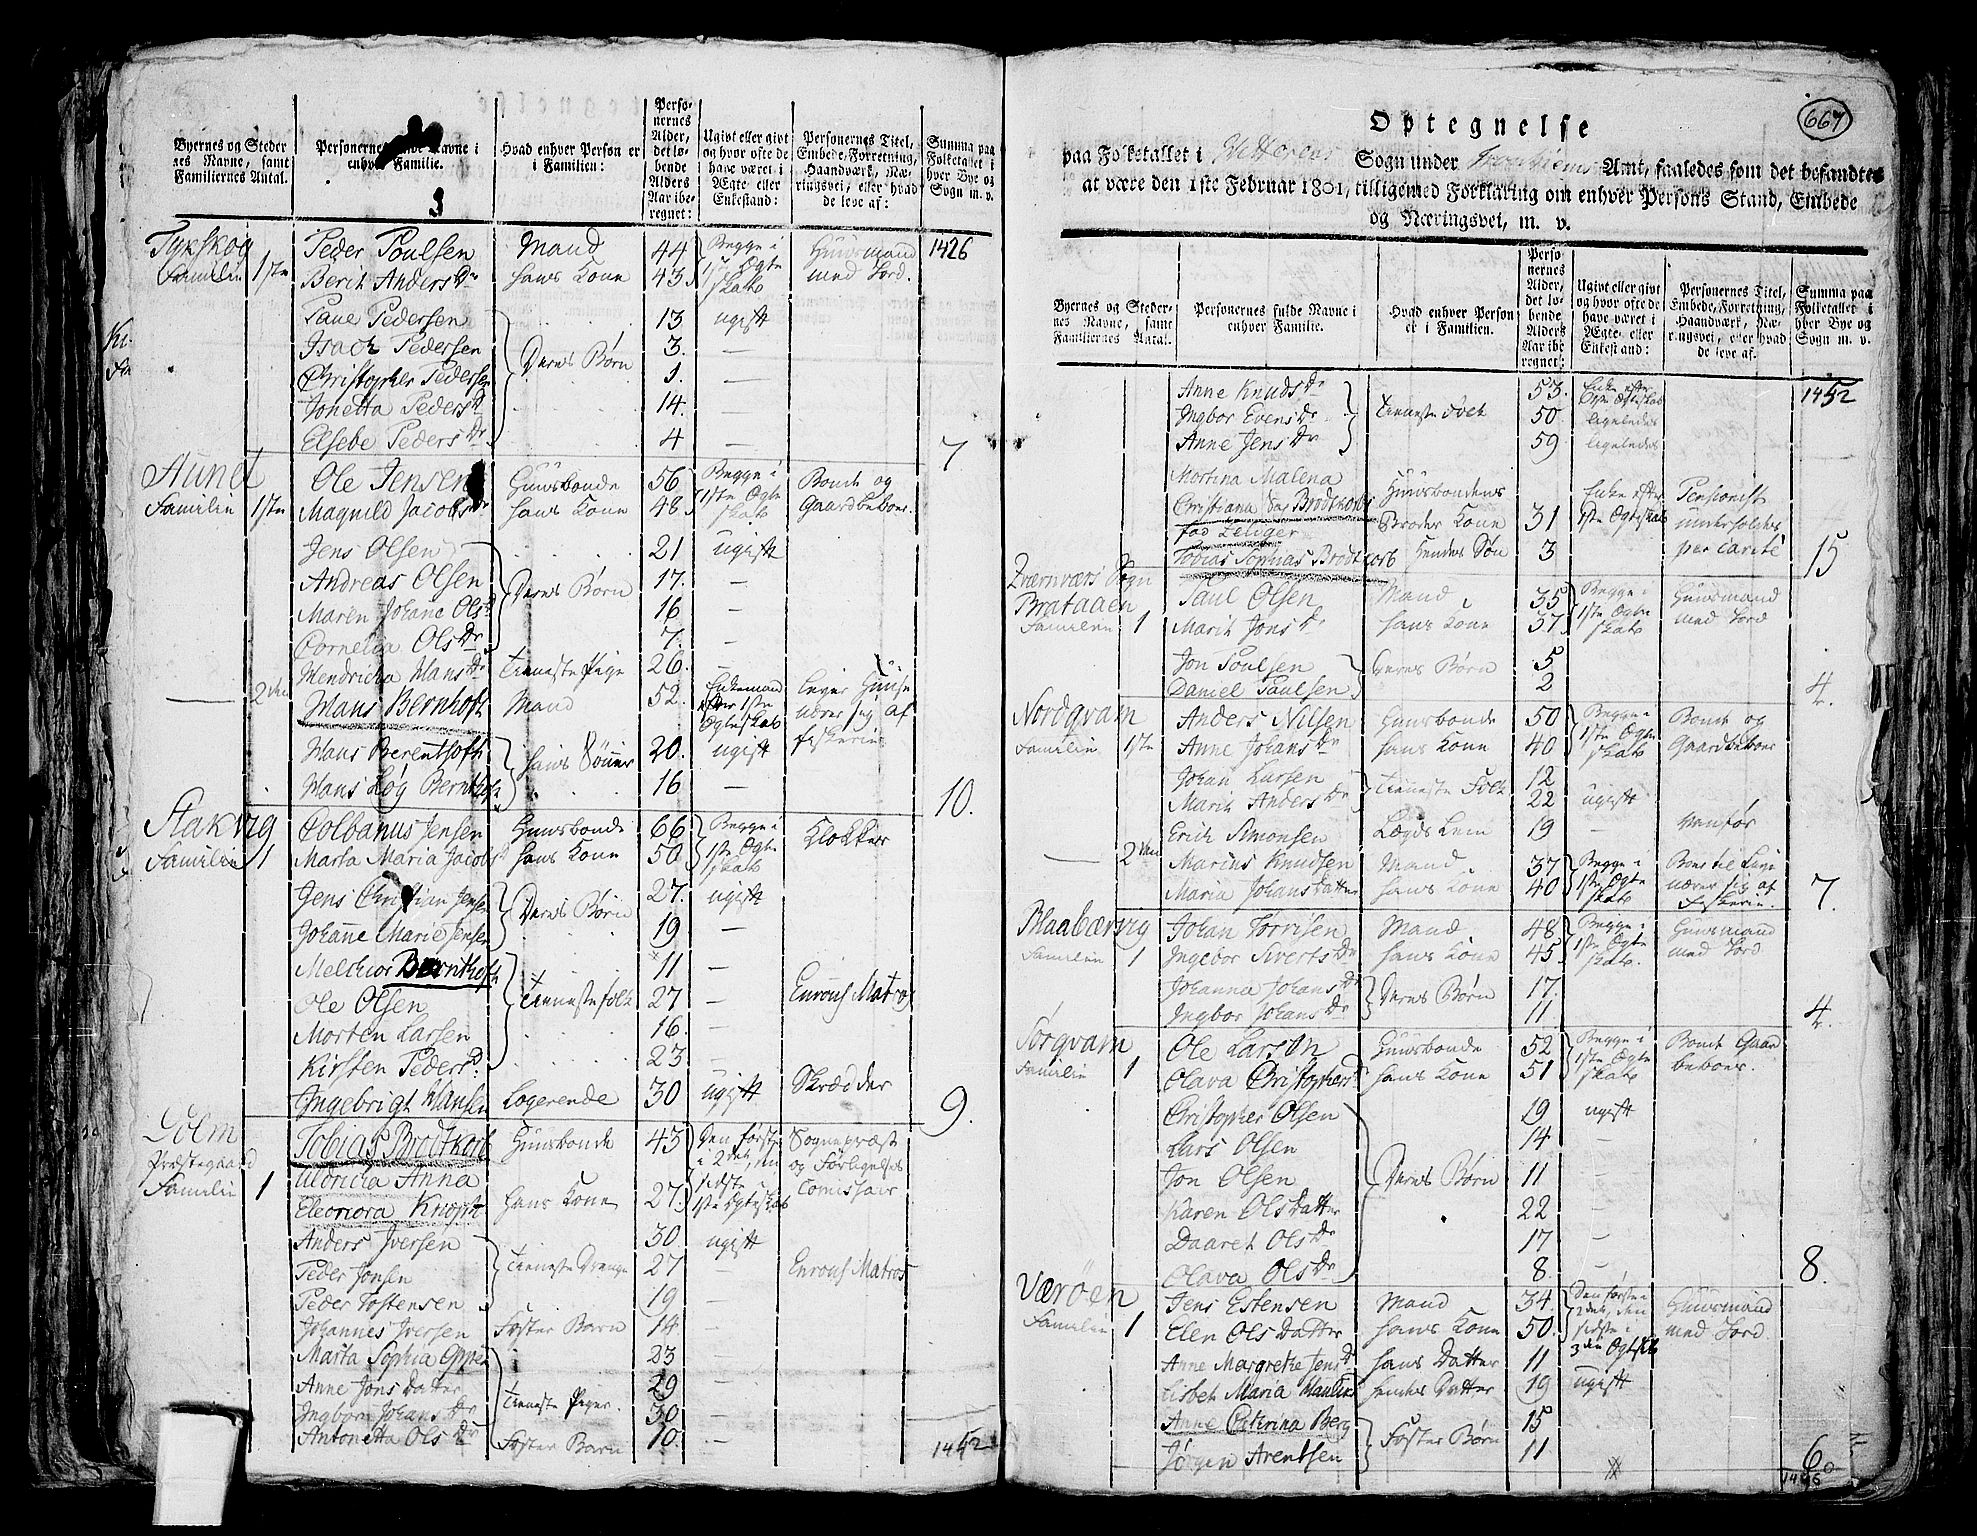 Byernes og Steder
nes Navne, samt
Familiernes Antal.
Personernes Navne i
enhver Familie.
Hvad enhver Person er
i Familien:
Perso-
nernes
Alder,
det lø-
bende
Alders
Aar ibe-
regnet:
Ugivt eller givt
og hvor ofte de
have været i
Ægte eller
Enkestand:
Personernes Titel,
Embede, Forretning,
Haandværk, Næ-
ringsvei, eller hvad
de leve af:
Summa paa
Folketallet i
hver Bye og
Sogn m. v.
Tykskog Familie 1ste Peder Poulsen Mand 44 Begge i 1ste Ægte skab Huusmand med Jord. 1426
Berit Anders Dr hans Kone 43
Paue Pedersen 13 ugift
Isach Pedersen Deres Børn 3. —
Christopher Pedersen 1. —
Jonetta Peders Dr 14. —
Elsebe Peders Dr 4 — 7
Aunet Familie 1ste Ole Jensen Huusbonde 56 Begge i 1ste Ægte skab Bonde og Gaardbeboer.
Magnild Jacobs Dr hans Kone 48
Jens Olsen 21 ugift
Andreas Olsen Deres Børn 17. —
Maren Johane Ols Dr 16 —
Cornelia Ols Dr 7. —
Hendricha Hans Dr Tieneste Pige 26. —
— 2den Hans Bernhoft Mand 52. Enkemand efter 1ste Ægteskab Lever Huuse nærer sig af fiskerie
Hans Berenthoft hans Sønner 20. ugift
Hans Løg Bernthoft 16 — 10.
Stakvig Familie 1 Colbanus Jensen Huusbonde 66 Begge i 1ste Ægte skab Klokker
Marta Maria Jacobs D hans Kone 50
Jens Christian Jensen Deres Børn 27. ugift
Johane Marie Jensen 19 —
Melchior Bernthoft 11 —
Ole Olsen Tienestefolk 27 — Enroul Matros
Morten Larsen 16. —
Kirsten Peders D. 23 —
Ingebrigt Hansen Logerende 30 ugift Skrædder 9.
Dolm Præstegaard Familie 1 Tobias Brodtkorb Huusbonde 43 Den første i 2det, den sidste i 1ste Ægteskab Sognepræst og Forligelses Comissair
Uldricia Anna
Eleonora Knoph hans Kone 27.
Anders Iversen 30 ugift
Peder Jonsen Tieneste Drenge 27 — Enroul Matros
Peder Tostensen 19 —
Johannes Iversen Foster Barn 14 —
Marta Sophia 23 —
Anne Jons Datter Tieneste Piger. 29 —
Ingbor Johans Dr 30 —
Antonetta Ols Dr Foster Barn 10. — 1452
667
Optegnelse
paa Folketallet i Hitterens Sogn under Trondhiems Amt, saaledes som det befandtes
at være den 1ste Februar 1801, tilligemed Forklaring om enhver Persons Stand, Embede
og Næringsvei, m. v.
Byernes og Steder-
nes Navne, samt
Familiernes Antal.
Personernes fulde Navne i
enhver Familie.
Hvad enhver Person
er i Familien.
Perso
nernes
Alder,
det lø-
bende
Alders
Aar ibe
regnet:
Ugivt eller givt
og hvor ofte de
have været i
Ægte- eller
Enkestand:
Personernes Titel,
Embede, Forretning,
Haandværk, Næ-
ringsvei, eller hvad
de leve af.
Summa paa
Folketallet i
hver Bye og
Sogn m. v.
Anne Knuds Dr 53. Enke efter Ægteskab 1452
Ingbor Evens Dr Tieneste Folk 50. ligeledes
Anne Jens Dr 59 ligeledes
Morina Malena
Christiana Sal Brodtkorbs Huusbondens Enke efter 1ste Ægteskab Pensionist
fød Zeliger Broder Kone 31 understøttes
Tobias Sophias Brodtcorb Hendes Søn 3 per carite 15
Qværnværs Sogn
Brataaen Familie 1 Paul Olsen Mand 35 Begge i 1ste Ægte skab Huusmand med Jord
Marit Jons Dr hans Kone 37.
Jon Poulsen Deres Børn 5
Daniel Paulsen 2 4.
Nordqvam Familie 1ste Anders Nilsen Huusbonde 50 Begge i 1ste Ægte skab Bonde og Gaardbeboer
Anne Johans Dr hans Kone 40
Johan Larsen Tieneste Folk 12
Marit Anders Dr 22 ugift
Erich Simonsen Lægds Lem 19 — Vanfør
— 2den Marius Knudsen Mand 37 Begge i 1ste Ægte skab nærer sig af Fiskerie.
Maria Johans Datter hans Kone 40 7.
Blaabærvig Familie 1 Johan Torrisen Mand 48 Begge i 1ste Ægte skab. Huusmand med Jord
Ingebor Siverts Dr hans Kone 45
Johanna Johans Dr Deres Børn 17.
Ingbor Johans Dr 11 4.
Sørqvam Familie 1 Ole Larson Huusbonde 52 Begge i 1ste Ægte skab Bonde Gaard beboer.
Olava Christophers D hans Kone 51
Christopher Olsen 19 ugift
Lars Olsen 14 —
Jon Olsen Deres Børn 11 —
Karen Ols Datter 22 —
Daaret Ols Dr 17 —
Olava Ols Dr 8. — 8.
Værøen Familie 1 Jens Estensen Mand 34. Den første i 2det, den sidste i 3die Ægteskab Huusmand med Jord
Elen Ols Datter hans Kone 50.
Anne Margrethe Jens D hans Datter 11 ugift
Lisbet Maria hendes Datter 19
Anne Catrina Berg Foster Børn 15
Jørgen Arentsen 11 6